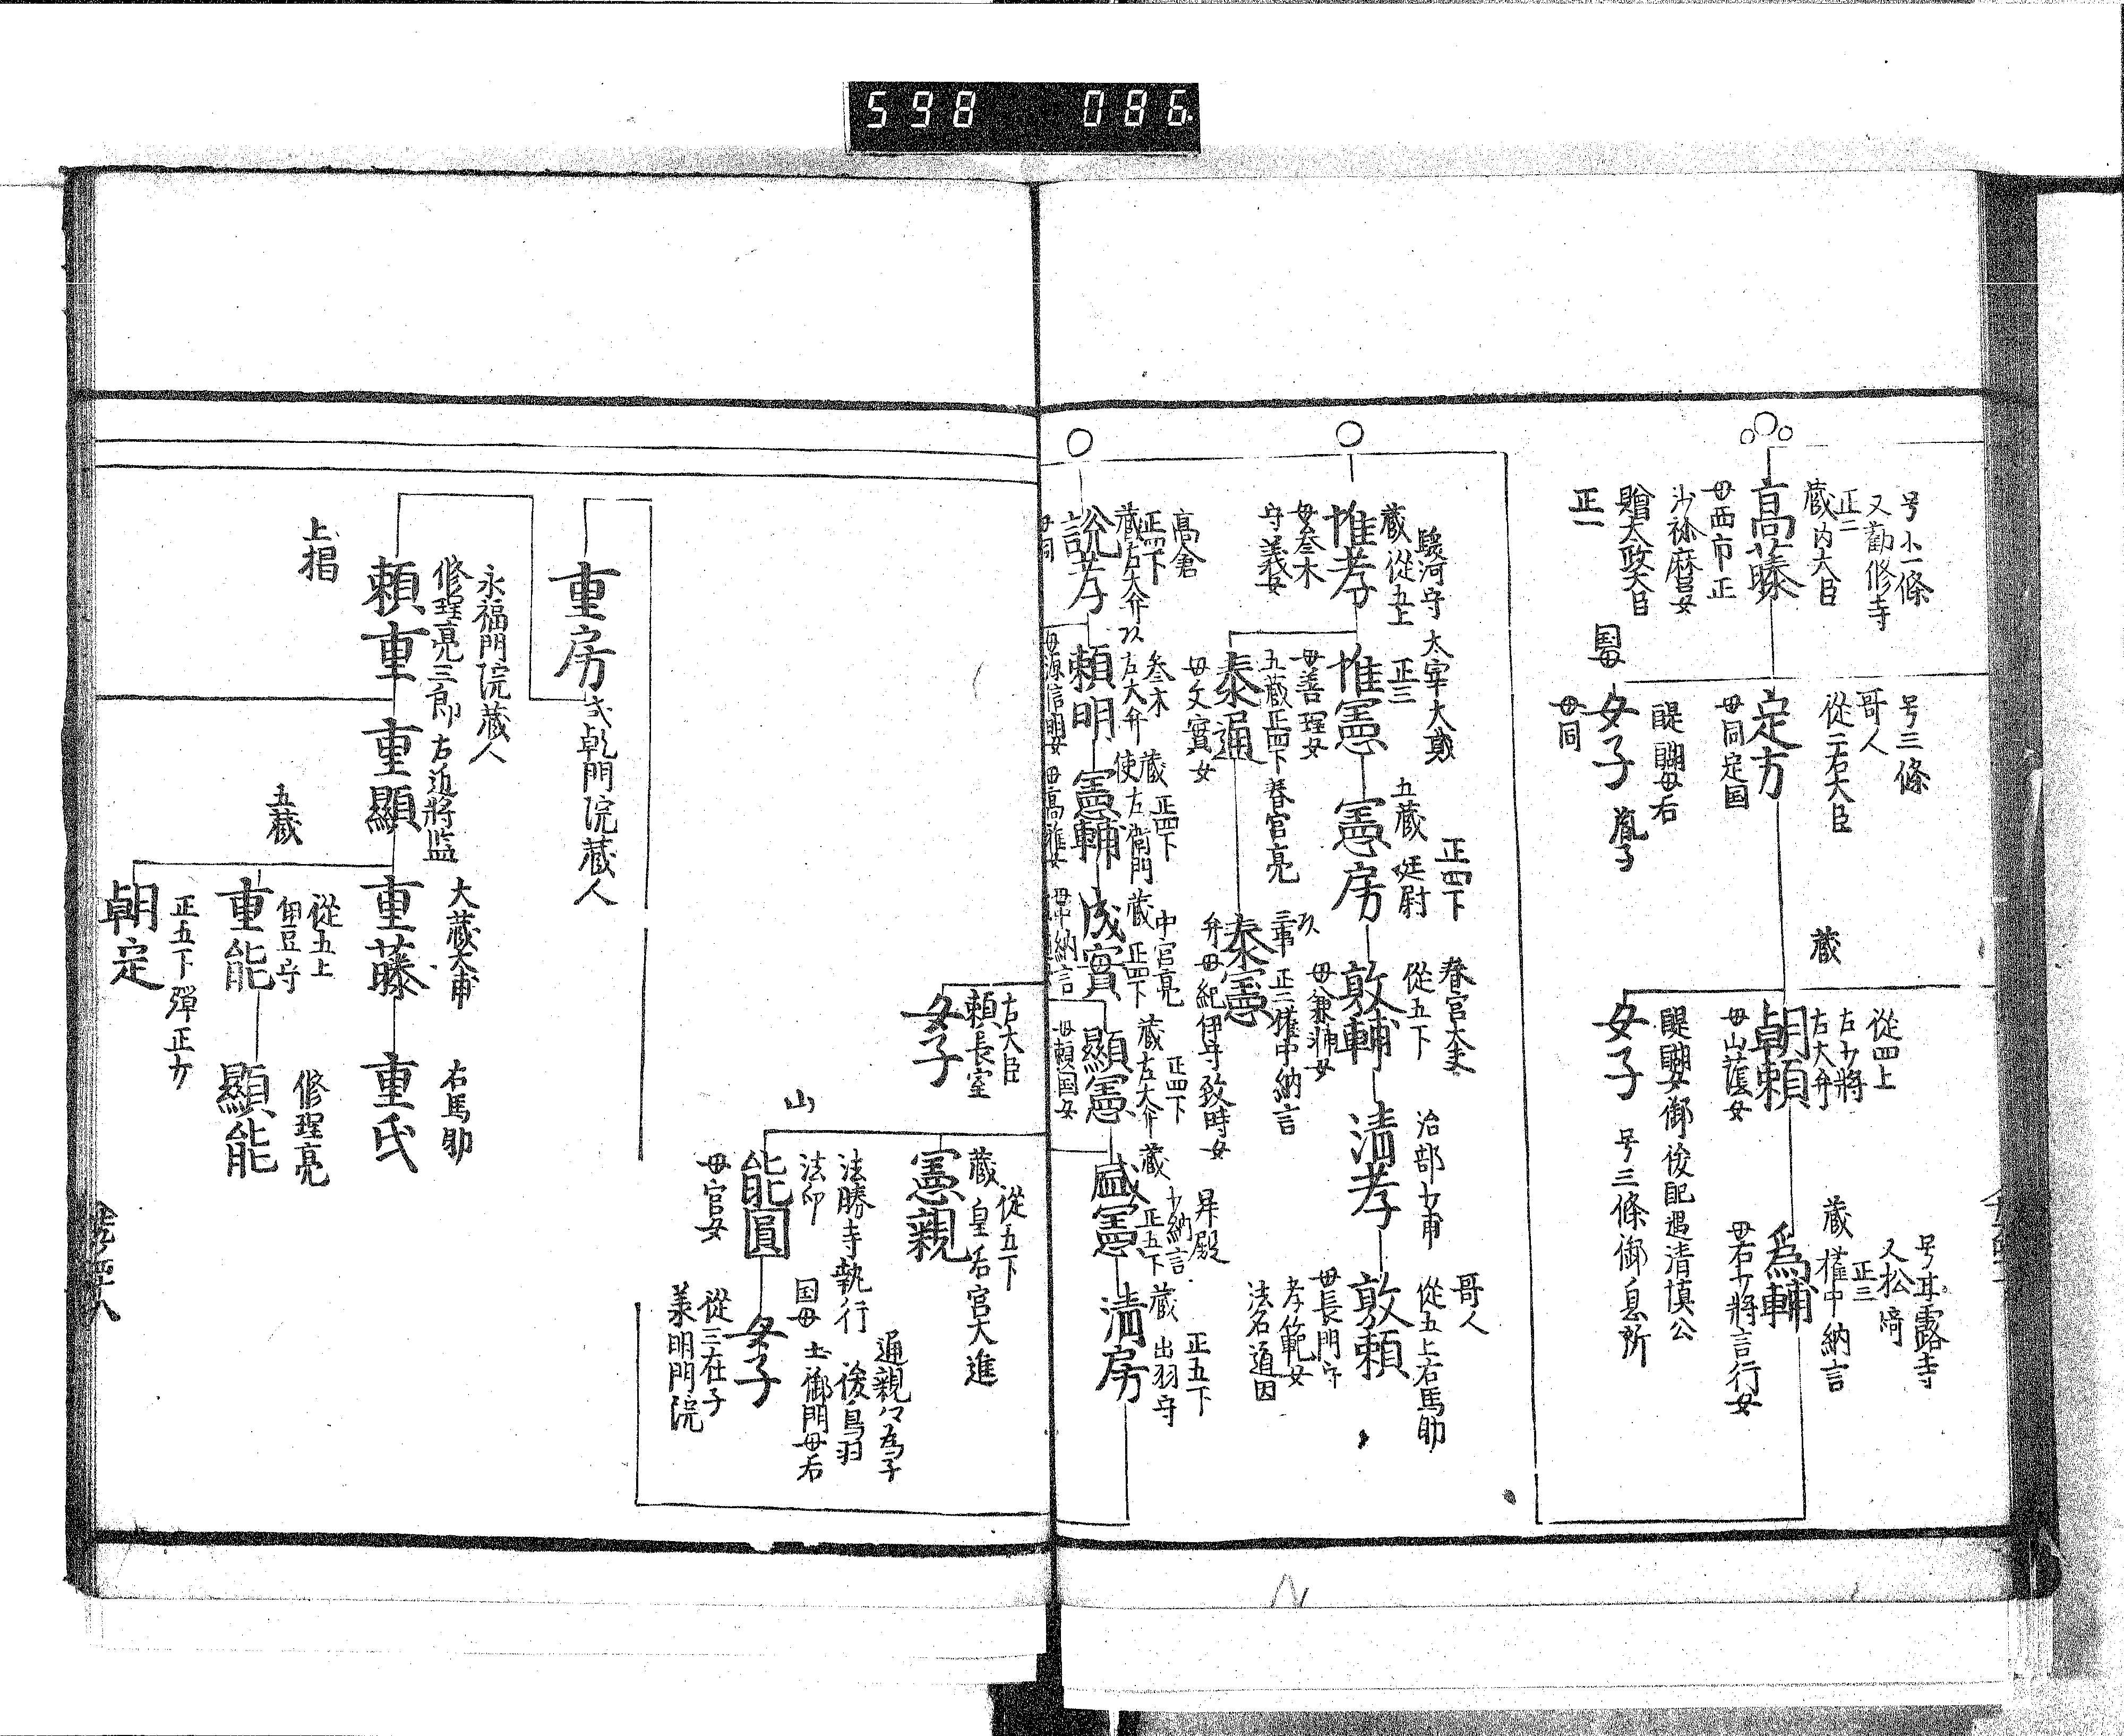 598 086
号小一條
又勸修寺
正二
蔵内大臣
高藤
母西市正
沙弥麻呂女
贈太政大臣
正一
号三條
哥人
從二右大臣
定方
母同定国
国母
醍醐母后
女子
胤子
母同
蔵
從四上
右少将
右大弁
朝頼
母山蔭女
醍醐女御後配遇清慎公
女子
号三條御息所
号甘露寺
又松﨑
正三
蔵權中納言
為輔
母右少将言行女
駿河守
蔵從五上
惟孝
母参木
守義女
太宰大貳
正三
惟憲
母善理女
五蔵正四下春宮亮
泰通
母文實女
正四下
五蔵廷尉
憲房
三事
正二權中納言
泰憲
弁母紀伊守致時女
春宮大夫
從五下
敦輔
母兼神女
治部少甫
清孝
哥人
從五上右馬助
敦頼
母長門守
孝範女
法名道因
高倉
正四下
蔵右大弁
説孝
母同
参木
左大弁
頼明
母源信明女
蔵正四下
使左衛門
憲輔
母高雅女
中宮亮
蔵正四下
成實
母中納言
正四下
蔵左大弁
顯憲
母頼国女
昇殿
少納言
蔵正五下
盛憲
正五下
蔵出羽守
清房
右大臣
頼長室
女子
從五下
蔵皇后宮大進
憲親
山
法勝寺執行
法印
能圓
母官女
通親公為子
後鳥羽
国母土御門母后
女子
從三在子
承明門院
重房
式乾門院蔵人
永福門院蔵人
修理亮三郎
頼重
上揭
右近将监
重顯
五蔵
大蔵大甫
重藤
右馬助
重氏
從五上
伊豆守
重能
修理亮
顯能
正五下弾正少
朝定